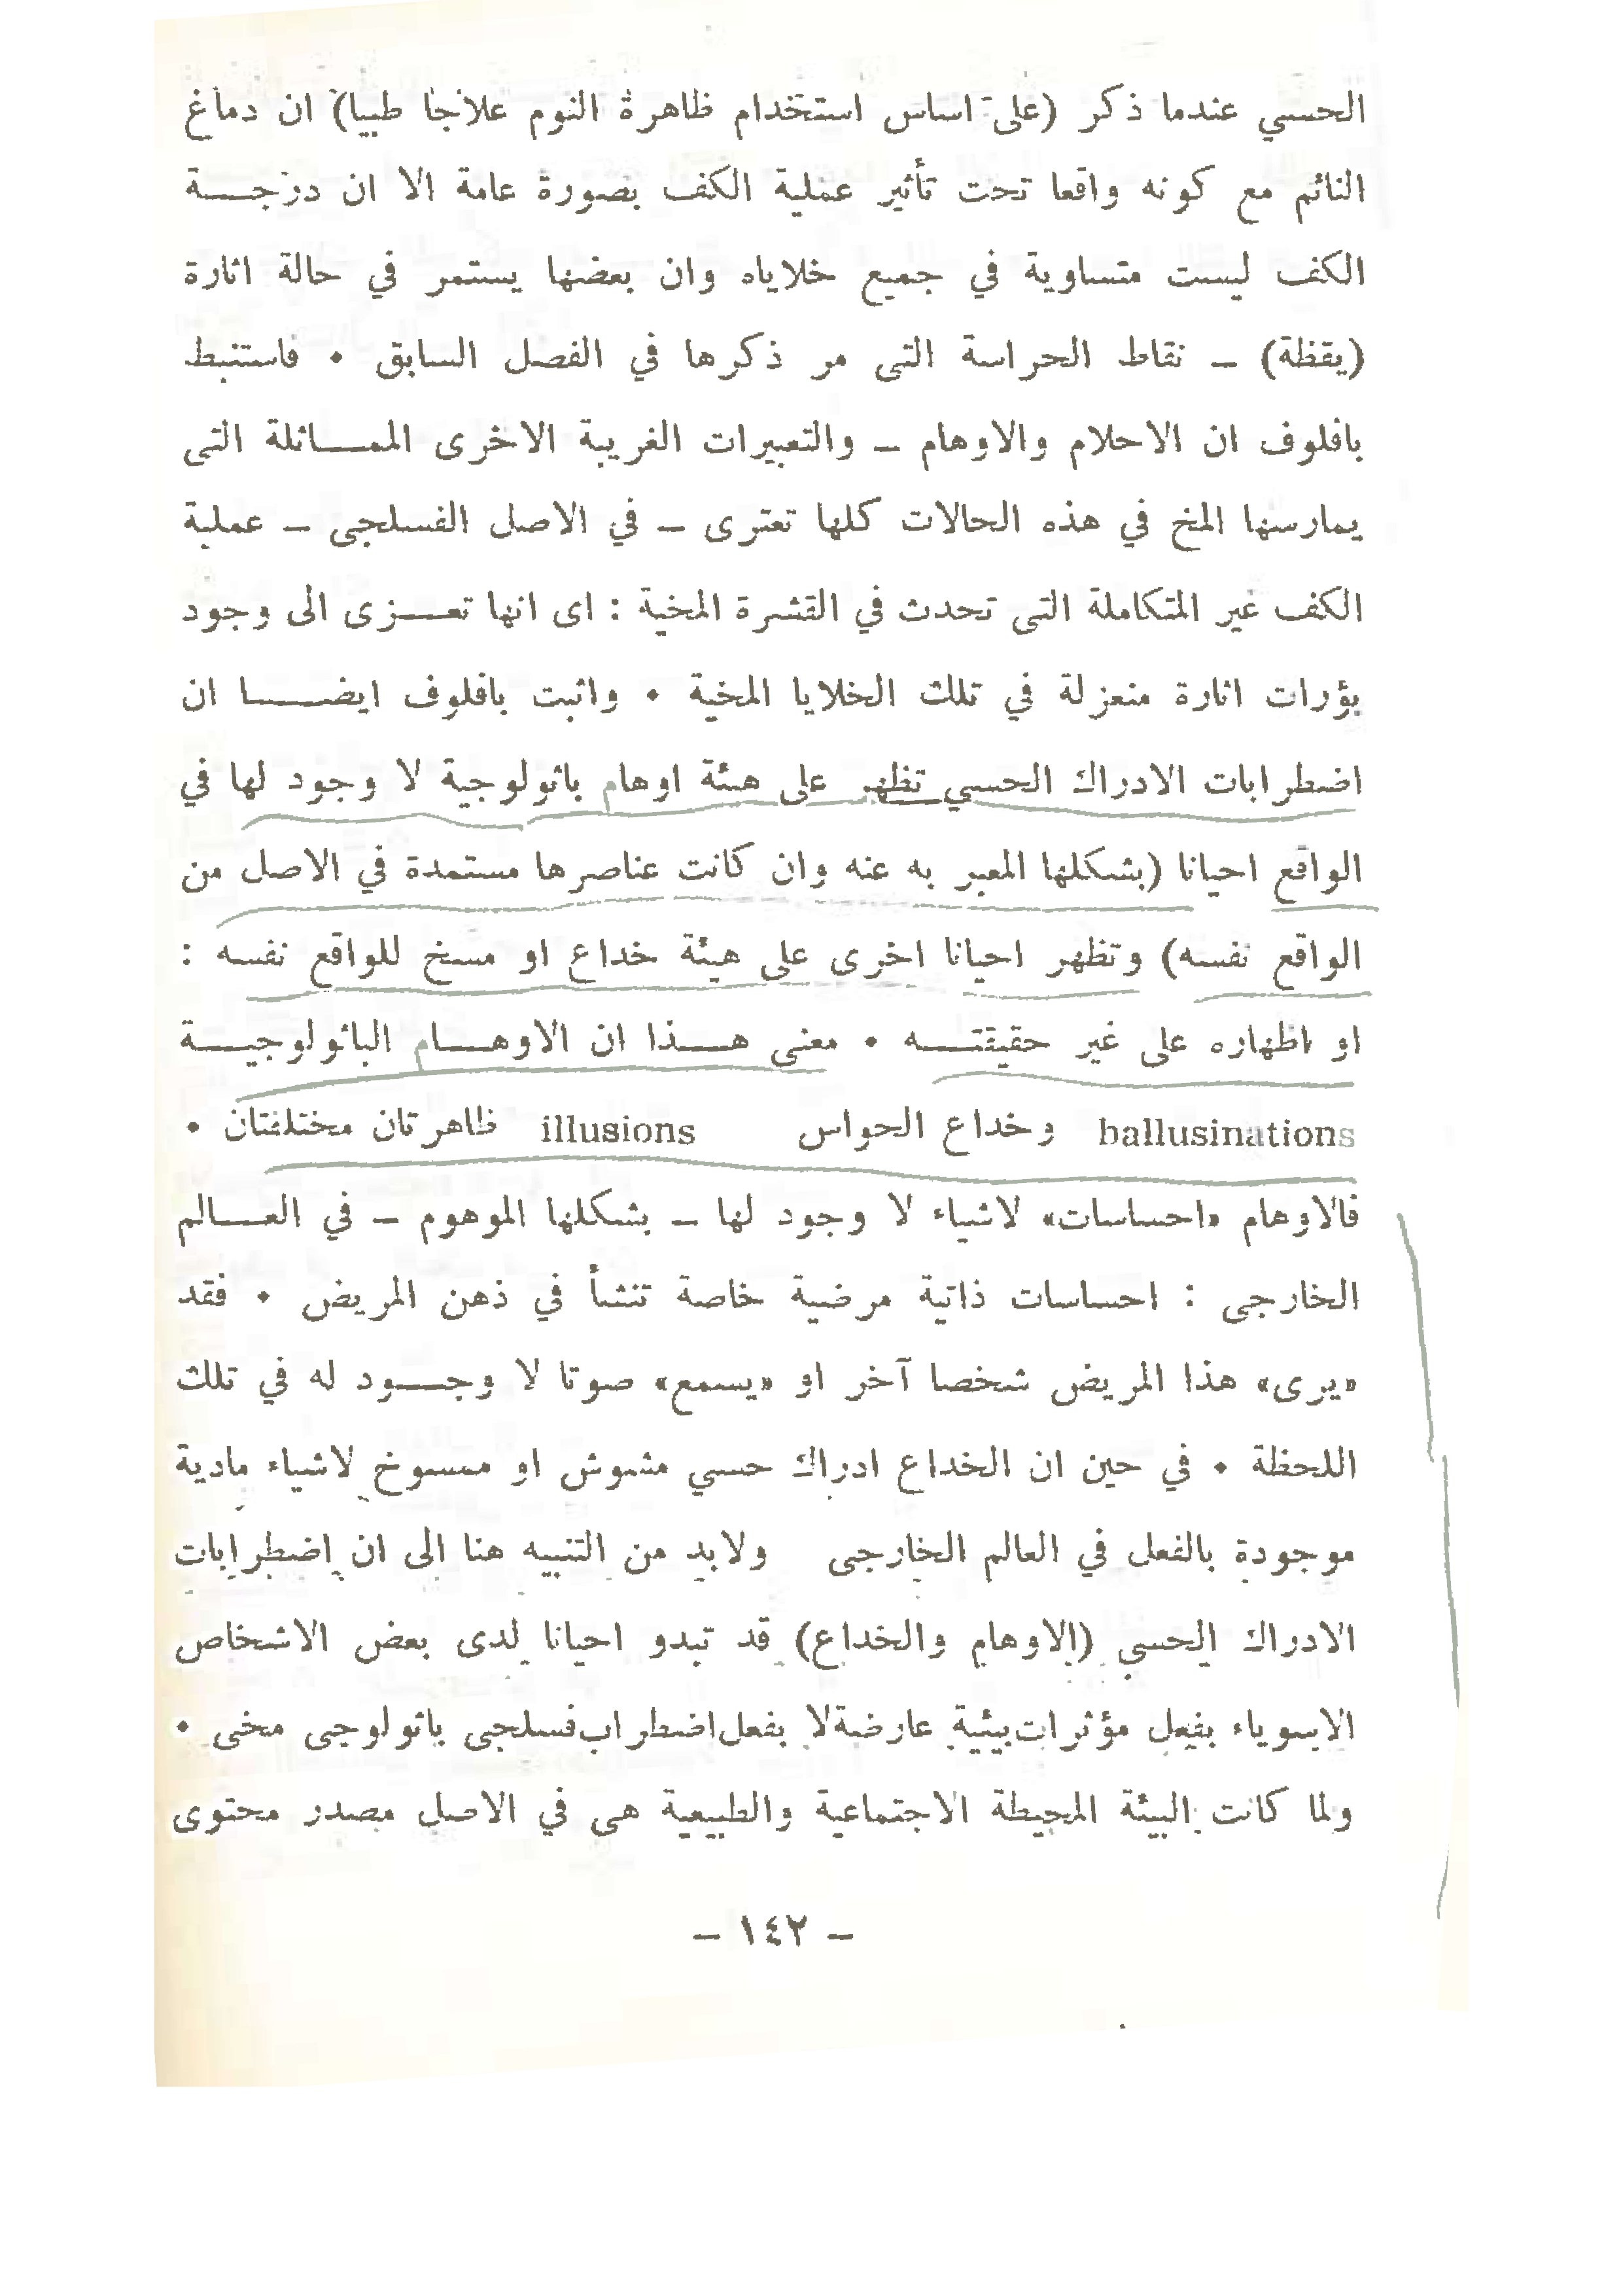 الحسي عندما ذكر (على اساس استخدام ظاهرة النوم علاجا طبيا) ان دماغ
النائم مع كونه واقعا تحت تأثير عملية الكف بصورة عامة الا ان درجـــة
الكف ليست متساوية في جميع خلاياه وان بعضها يستمر في حالة اثارة
(يقظة) – نقاط الحراسة التى مر ذكرها في الفصل السابق • فاستنبط
بافلوف ان الاحلام والاوهام – والتعبيرات الغريبة الاخرى الممـــاثلة التى
يمارسها المخ في هذه الحالات كلها تعترى – في الاصل الفسلجى – عملية
الكف غير المتكاملة التى تحدث في القشرة المخية : اى انها تعـــزى الى وجود
بؤرات اثارة منعزلة في تلك الخلايا المخية • واثبت بافلوف ايضـــا ان
اضطرابات الادراك الحسي تظهر على هيئة اوهام باثولوجية لا وجود لها في
الواقع احيانا (بشكلها المعبر به عنه وان كانت عناصرها مستمدة في الاصل من
الواقع نفسه) وتظهر احيانا اخرى على هيئة خداع او مسخ للواقع نفسه :
او اظهاره على غير حقيقتـــه • معنى هـــذا ان الاوهـــام الباثولوجيـــة
hallusinations وخداع الحواس illusions ظاهرتان مختلفتان •
فالاوهام «احساسات» لاشياء لا وجود لها – بشكلها الموهوم – في العـــالم
الخارجى : احساسات ذاتية مرضية خاصة تنشأ في ذهن المريض • فقد
«يرى» هذا المريض شخصا آخر او «يسمع» صوتا لا وجـــود له في تلك
اللحظة • في حين ان الخداع ادراك حسي مشوش او ممسوخ لاشياء مادية
موجودة بالفعل في العالم الخارجى ولابد من التنبيه هنا الى ان اضطرابات
الادراك الحسي (الاوهام والخداع) قد تبدو احيانا لدى بعض الاشخاص
الاسوياء بفعل مؤثرات بيئية عارضة لا بفعل اضطراب فسلجى باثولوجى مخى •
ولما كانت البيئة المحيطة الاجتماعية والطبيعية هى في الاصل مصدر محتوى
– ١٤٢ –